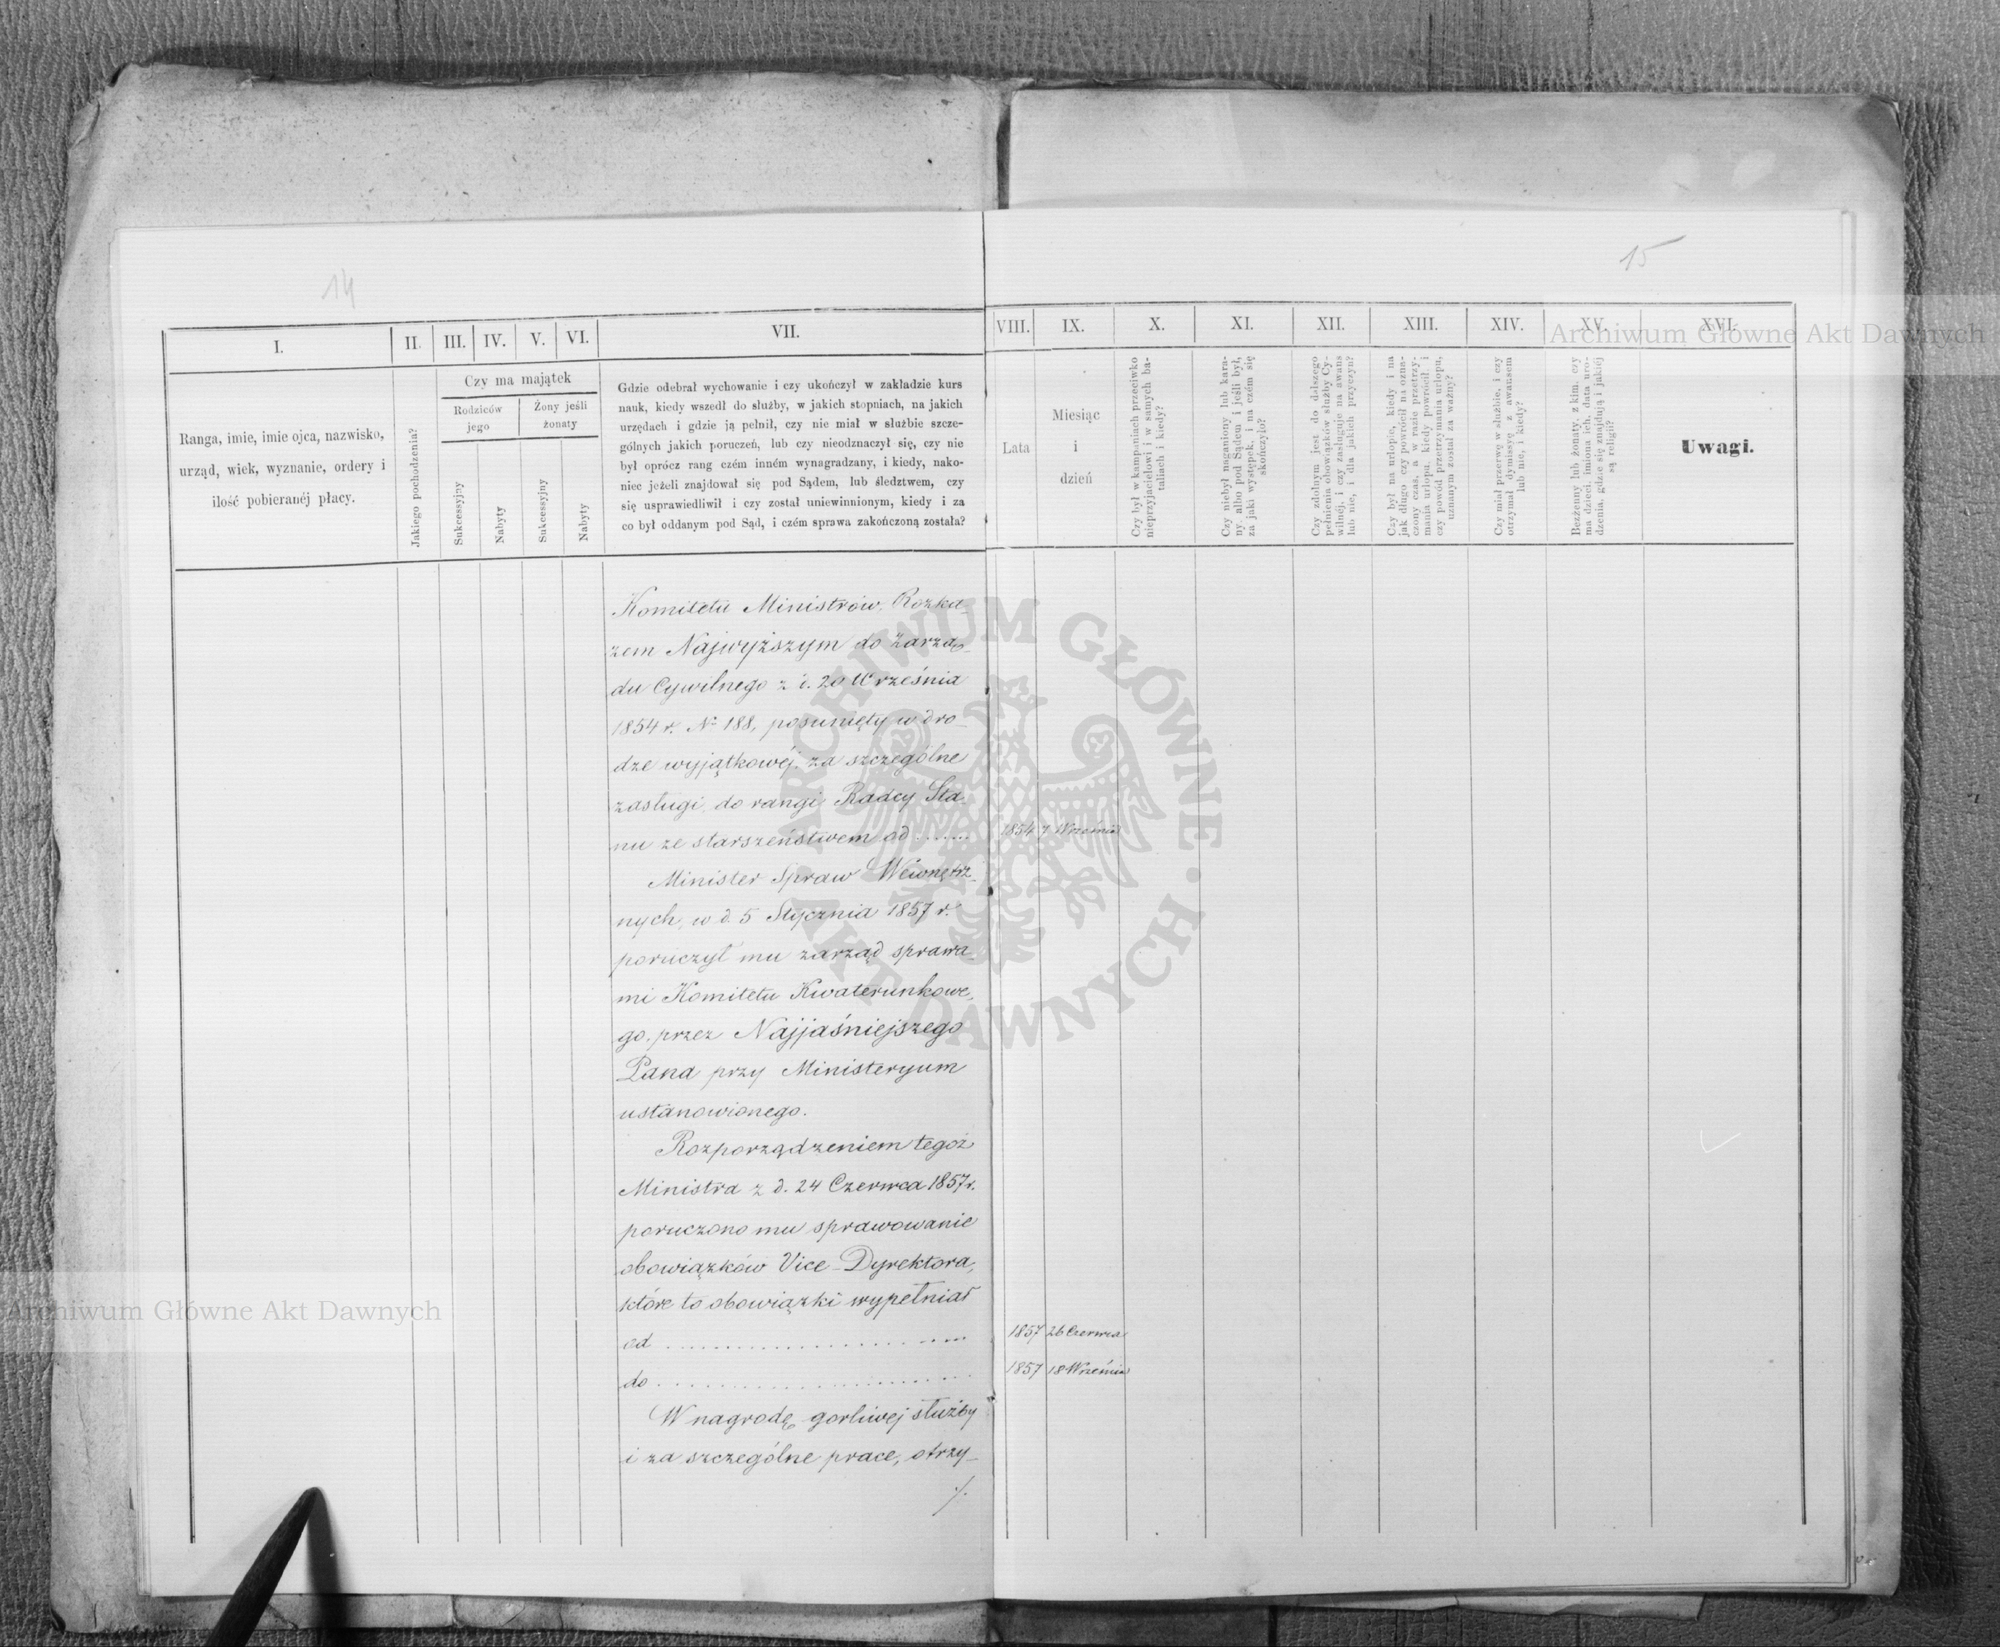 14
15
I.
II.
III.
IV.
V.
VI.
VII.
VIII.
IX.
X.
XI.
XII.
XIII.
XIV.
XV.
XVI.
Ranga, imie, imie ojca, nazwisko,
urząd, wiek, wyznanie, ordery i
ilość pobieranéj płacy.
Jakiego pochodzenia?
Czy ma majątek
Rodziców
jego
Żony jeśli
żonaty
Sukcessyjny
Nabyty
Sukcessyjny
Nabyty
Gdzie odebrał wychowanie i czy ukończył w zakładzie kurs
nauk, kiedy wszedł do służby, w jakich stopniach, na jakich
urzędach i gdzie ją pełnił, czy nie miał w służbie szcze-
gólnych jakich poruczeń, lub czy nieodznaczył się, czy nie
był oprócz rang czém inném wynagradzany, i kiedy, nako-
niec jeżeli znajdował się pod Sądem, lub śledztwem, czy
się usprawiedliwił i czy został uniewinnionym, kiedy i za
co był oddanym pod Sąd, i czém sprawa zakończoną została?
Lata
Miesiąc
i
dzień
Czy był w kampaniach przeciwko
nieprzyjacielowi i w samych ba-
taliach i kiedy?
Czy niebył naganiony lub kara-
ny albo pod Sądem i jeśli był,
za jaki występek, i na czém się
skończyło?
Czy zdolnym jest do dalszego
pełnienia obowiązków służby Cy-
wilnéj, i czy zasługuje na awans
lub nie, i dla jakich przyczyn?
Czy był na urlopie, kiedy i na
jak długo czy powrócił na ozna-
czony czas, a w razie przetrzy-
mania urlopu, kiedy powrócił i
czy powód przetrzymania urlopu,
uznanym został za ważny?
Czy miał przerwę w służbie, i czy
otrzymał dymissyę z awansem
lub nie, i kiedy?
Bezżenny lub żonaty, z kim, czy
ma dzieci, imiona ich, data uro-
dzenia, gdzie się znajdują i jakiéj
są religii?
Uwagi.
Komitetu Ministrów, Rozka-
zem Najwyższym do Zarzą-
du Cywilnego z d. 20 Września
1854 r. N 188, posunięty w dro-
dze wyjątkowéj za szczególne
zasługi, do rangi Radcy Sta-
nu ze starszeństwem od .......
1854 7 Września
Minister Spraw Wewnętrz-
nych, w d. 5 Stycznia 1857 r.
poruczył mu zarząd sprawa-
mi Komitetu Kwaterunkowe-
go, przez Najjaśniejszego
Pana przy Ministeryum
ustanowionego.
Rozporządzeniem tegoż
Ministra z d. 24 Czerwca 1857 r.
poruczono mu sprawowanie
obowiązków Vice-Dyrektora,
które to obowiązki wypełniał
od ........................
1857 26 Czerwca
do ........................
1857 18 Września
W nagrodę gorliwej służby
i za szczególne prace, otrzy-
./.
Archiwum Główne Akt Dawnych
Archiwum Główne Akt Dawnych
ARCHIWUM GŁÓWNE · AKT DAWNYCH ·